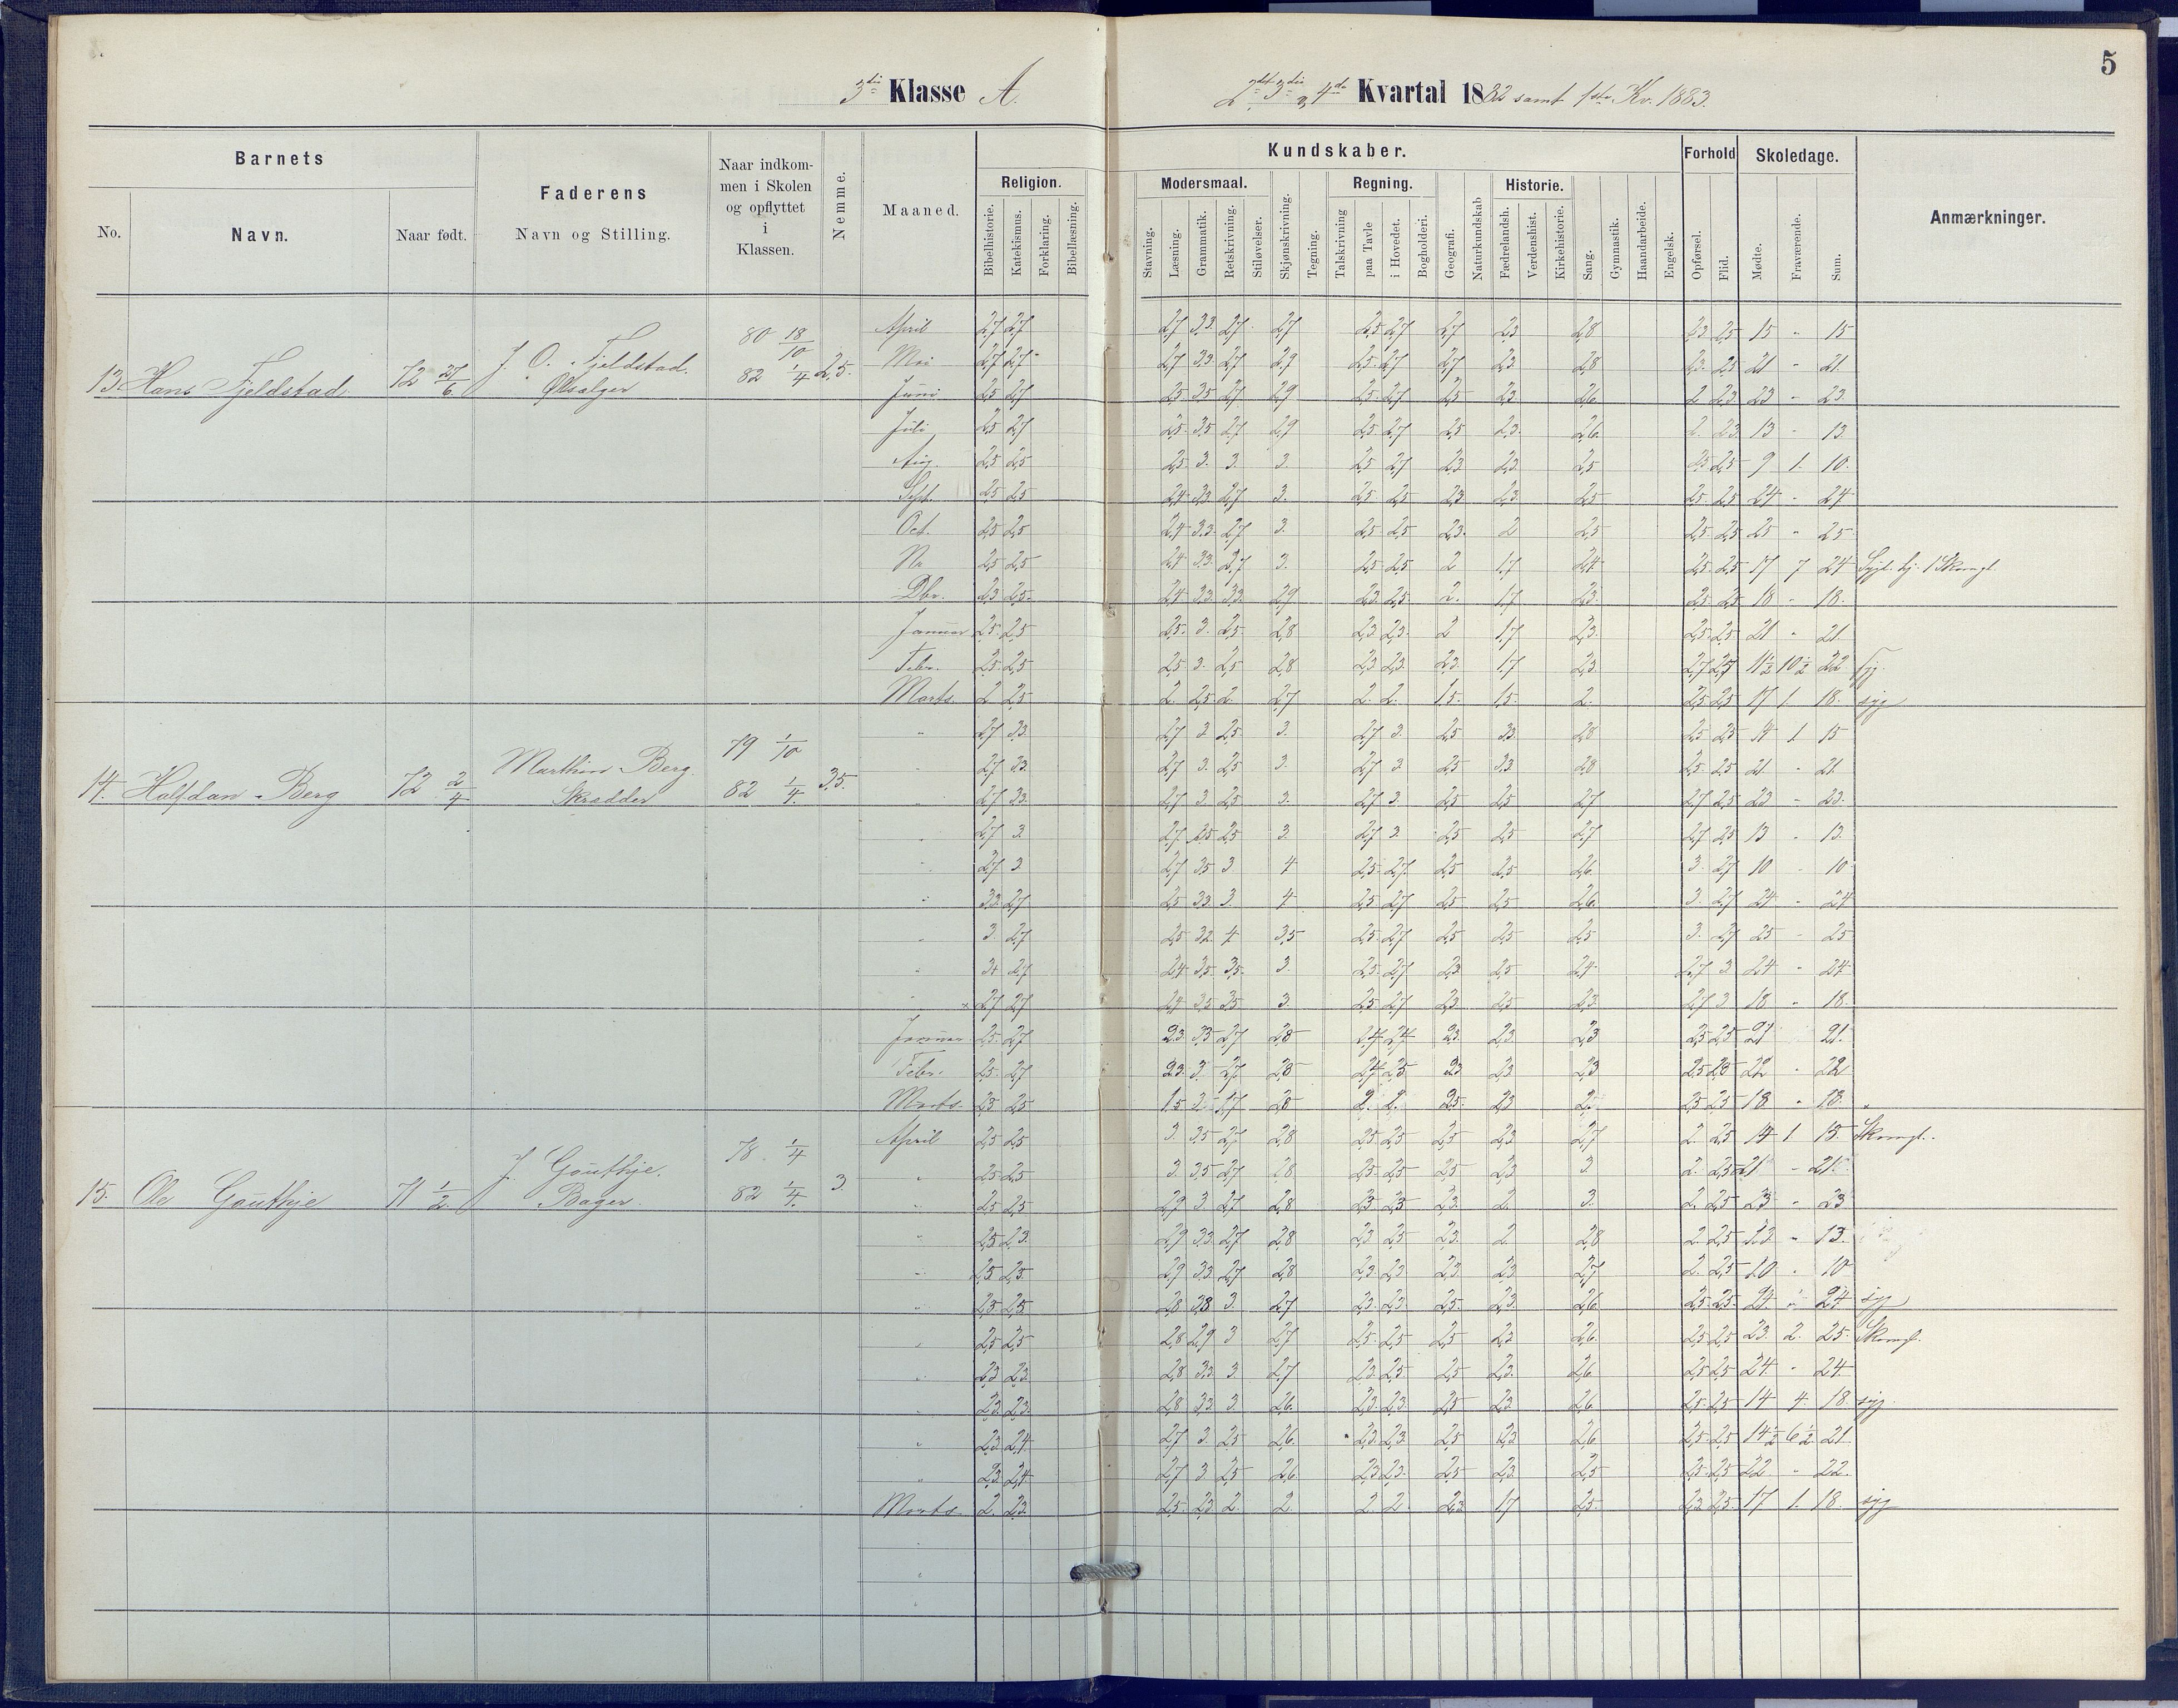 5
3die Klasse A.
2det 3die og 4de Kvartal 1882 samt 1ste Kv. 1883.
Barnets
Faderens
Navn og Stilling.
Naar indkom-
men i Skolen
og opflyttet
i
Klassen.
Nemme.
Maaned.
Kundskaber.
Forhold
Skoledage.
Anmærkninger.
No.
Navn.
Naar født.
Religion.
Modersmaal.
Regning.
Historie.
Bibelhistorie.
Katekismus.
Forklaring.
Bibellæsning.
Stavning.
Læsning.
Grammatik.
Retskrivning.
Stiløvelser.
Skjønskrivning.
Tegning.
Talskrivning
paa Tavle
i Hovedet.
Bogholderi.
Geografi.
Naturkundskab
Fædrelandsh.
Verdenshist.
Kirkehistorie.
Sang.
Gymnastik.
Haandarbeide.
Engelsk.
Opførsel.
Flid.
Mødte.
Fraværende.
Sum.
13. Hans Fjeldstad 72 27/6 J. O. Fjeldstad. Ølsælger 80 18/10 82 1/4 2,5.
April 2,7 2,7 2,7 3,3. 2,7. 2,7 2,5 2,7 2,7 2,3 2,8 2,3 2,5 15 - 15
Mai 2,7 2,7 2,7 3,3 2,7 2,9 2,5 2,7 2,7 2,3. 2,8 2,3. 2,5 21 - 21.
Juni 2,5 2,7 2,5 3,5 2,7 2,9 2,5 2,7 2,5 2,3 2,6 2 2,3 23 - 23.
Juli 2,5 2,7 2,5 3,5 2,7 2,9 2,5 2,7 2,5 2,3. 2,6 2. 2,3 13 - 13.
Aug. 2,5 2,5 2,5 3. 3. 3. 2,5 2,7 2,3 2,3 2,5 2,5 2,5 9 1. 10.
Sept. 2,5 2,5 2,4 3,3 2,7 3. 2,5 2,5 2,3 2,3. 2,5 2,5 2,5 24 - 24
Oct. 2,5 2,5 2,4 3,3. 2,7 3. 2,5 2,5 2,3. 2 2,5 2,5. 2,5 25 - 25
Nr 2,5 2,5 2,4 3,3. 2,7 3. 2,5 2,5 2 1,7 2,4 2,5. 2,5 17 7 24
Dbr. 2,3 2,5. 2,4 3,3 3,3. 2,9 2,3 2,5 2. 1,7 2,3. 2,5. 2,5 18 - 18.
Januar 2,5. 2,5 2,5. 3. 2,5 2,8 2,3 2,3. 2 1,7 2,3. 2,5. 2,5. 21 - 21.
Febr. 2,5. 2,5 2,5 3. 2,5 2,8 2,3 2,3. 2,3. 1,7 2,3. 2,7 2,7 11 1/2 10 1/2 22 syg.
Marts. 2 2,5 2. 2,5. 2. 2,7 2. 2. 1,5. 1,5. 2. 2,5 2,5 17 1. 18. syg
14. Halfdan Berg 72 2/4 Marthin Berg. Skrædder 79 1/10 82 1/4. 3,5.
" 2,7 3,3. 2,7 3 2,5 3. 2,7 3. 2,5 3,3 2,8 2,5 2,5 14 1 15
" 2,7 3,3. 2,7 3. 2,5 3. 2,7 3 2,5 3,3 2,8 2,5. 2,5 21 - 21
" 2,7 3,3. 2,7 3. 2,5 3. 2,7 3. 2,5 2,5 2,7 2,7 2,5 23 - 23.
" 2,7 3 2,7 3,5 2,5 3 2,7 3. 2,5 2,5 2,7 2,7 2,5 13 - 13.
" 2,7 3 2,7 3,5 3 4 2,5 2,7. 2,5 2,5 2,6 3. 2,7 10 - 10.
" 3,3. 2,7 2,5 3,3. 3. 4 2,5 2,7 2,5 2,5 2,6. 3. 2,7 24 - 24
" 3. 2,7 2,5 3,2 4 3,5 2,5. 2,7 2,5 2,5 2,5 3. 2,7 25 - 25
" 3 2,7 2,4 3,5. 3,5. 3. 2,5. 2,7 2,3. 2,5 2,4 2,7 3 24 - 24
" 2,7 2,7 2,4 3,5 3,5 3. 2,5 2,7 2,3. 2,5 2,3. 2,7 3 18 - 18.
Januar 2,5. 2,7 2,3. 3,5 2,7 2,8 2,4 2,4 2,3. 2,3. 2,3 2,5 2,5 21 21.
Febr. 2,5. 2,7 2,3. 3. 2,7 2,8 2,4 2,5 2,3 2,3 2,3 2,5 2,5 22 - 22
Marts. 2,5 2,5 1,5 2. 1,7. 2,8 2. 2. 2,5. 2,3 2. 2,5 2,5 18 - 18.
15. Ole Gauthje 71 1/2 J. Gauthje. Bager. 78 1/4 82 1/4. 3.
April 2,5 2,5 3. 3,5 2,7 2,8 2,5 2,5. 2,5 2,3 2,7 2. 2,5 14 1. 15. Skomgl.
" 2,5 2,5 3. 3,5 2,7 2,8 2,5. 2,5 2,5 2,3 3. 2. 2,5 21 - 21.
" 2,5 2,5 2,9 3 2,7 2,8 2,5 2,5 2,3. 2. 3. 2. 2,5 23 - 23
" 2,5 2,3. 2,9 3,3. 2,7 2,8 2,3. 2,5 2,3. 2 2,8 2. 2,5 13 - 13.
" 2,5 2,5. 2,9 3,3. 2,7 2,8 2,3. 2,3. 2,3. 2,3. 2,7 2. 2,5 10 - 10
" 2,5. 2,5 2,8 3,3 3. 2,7 2,3. 2,3. 2,5. 2,3. 2,6 2,5 2,5. 24 syg
" 2,5 2,5 2,8 2,9 3 2,7 2,5. 2,5 2,5 2,3 2,6. 2,5 2,5 23. 2. 25. Skomgl.
" 2,3 2,3. 2,8 3,3. 3. 2,7 2,3. 2,5 2,5 2,3. 2,6 2,5 2,5 24. - 24
" 2,3. 2,3. 2,8 3,3. 3. 2,6. 2,3. 2,3. 2,5 2,3 2,6 2,5. 2,5 14 4. 18. syg.
" 2,3. 2,4. 2,7 3. 2,5 2,6. 2,3. 2,3. 2,5 2,3 2,6 2,5. 2,5 14 1/2 6 1/2 21
" 2,3. 2,4 2,7 3 2,5 2,6. 2,3 2,3. 2,5 2,3. 2,5 2,5. 2,5 22 - 22.
Marts. 2. 2,3. 2,5. 2,3 2. 2. 2. 2. 2,3. 1,7 2,5. 2,3 2,5. 17 1. 18. syg